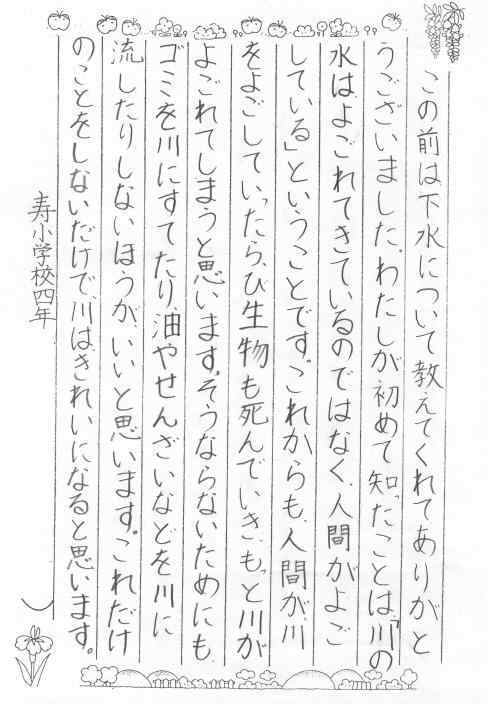 この前は下水について教えてくれてありがと
うございました。わたしが初めて知ったことは、「川の
水は、よごれてきているのではなく、人間がよご
している」ということです。これからも、人間が、川
をよごしていったら、び生物も死んでいき、もっと川が
よごれてしまうと思います。そうならないためにも、
ゴミを川にすてたり、油やせんざいなどを川に
流したりしないほうが、いいと思います。これだけ
のことをしないだけで、川はきれいになると思います。
寿小学校四年